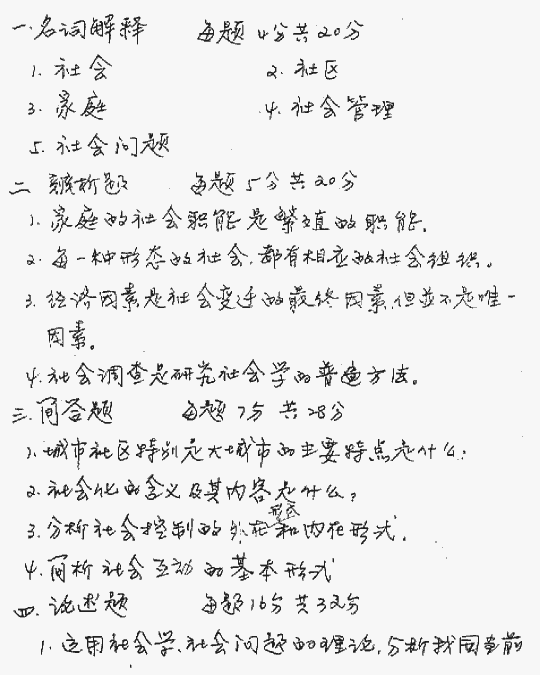 一.名词解释 每题4分共20分
1. 社会 2. 社区
3. 家庭 4. 社会管理
5. 社会问题
二 辨析题 每题5分共20分
1. 家庭的社会职能是繁殖的职能。
2. 每一种形态的社会,都有相应的社会组织。
3. 经济因素是社会变迁的最终因素,但并不是唯一
因素。
4. 社会调查是研究社会学的普遍方法。
三.简答题 每题7分 共28分
1. 城市社区特别是大城市的主要特点是什么?
2. 社会化的含义及其内容是什么?
形式
3. 分析社会控制的外在和内在形式.
4. 简析社会互动的基本形式
四.论述题 每题16分共32分
1. 运用社会学、社会问题的理论,分析我国当前